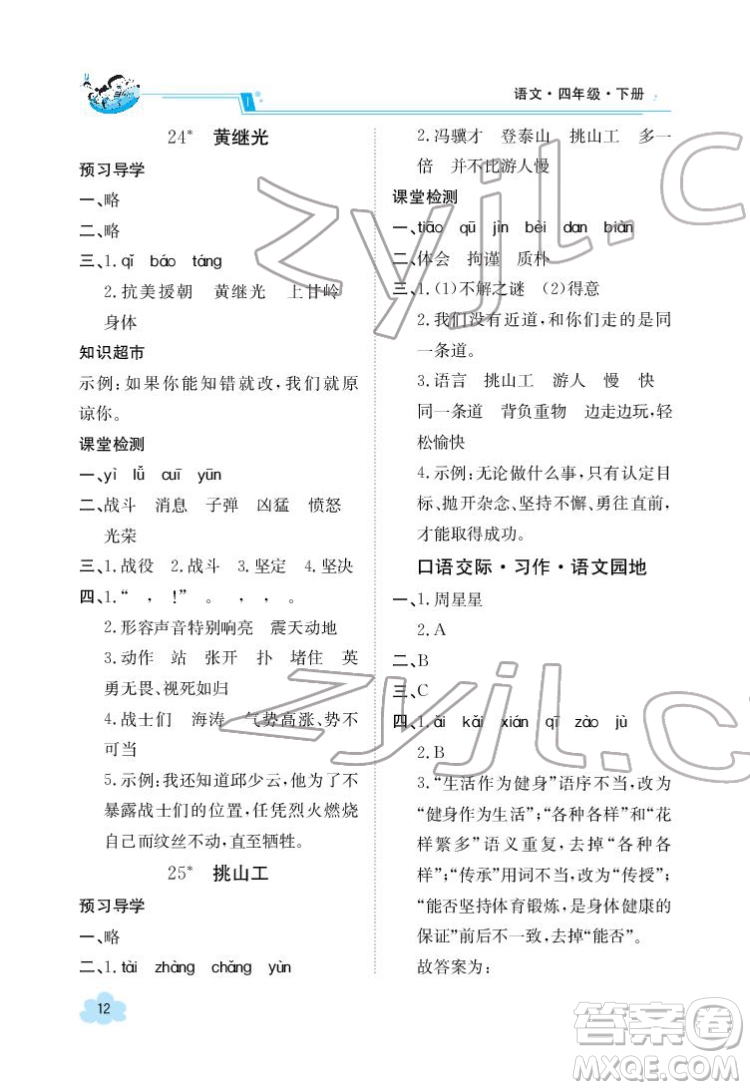 语文·四年级·下册
24* 黄继光
预习导学
一、略
二、略
三、1. qǐ báo táng
2. 抗美援朝 黄继光 上甘岭
身体
知识超市
示例:如果你能知错就改,我们就原
谅你。
课堂检测
一、yì lǚ cuī yūn
二、战斗 消息 子弹 凶猛 愤怒
光荣
三、1. 战役 2. 战斗 3. 坚定 4. 坚决
四、1. “ , !” 。 , , 。
2. 形容声音特别响亮 震天动地
3. 动作 站 张开 扑 堵住 英
勇无畏、视死如归
4. 战士们 海涛 气势高涨、势不
可当
5. 示例:我还知道邱少云,他为了不
暴露战士们的位置,任凭烈火燃烧
自己而纹丝不动,直至牺牲。
25* 挑山工
预习导学
一、略
二、1. tài zhàng chǎng yùn
2. 冯骥才 登泰山 挑山工 多一
倍 并不比游人慢
课堂检测
一、tiāo qū jìn bèi dan biàn
二、体会 拘谨 质朴
三、1. (1)不解之谜 (2)得意
2. 我们没有近道,你们走的是同
一条道。
3. 语言 挑山工 游人 慢 快
同一条道 背负重物 边走边玩,轻
松愉快
4. 示例:无论做什么事,只有认定目
标、抛开杂念、坚持不懈、勇往直前,
才能取得成功。
口语交际·习作·语文园地
一、1. 周星星
2. A
二、B
三、C
四、1. ǎi kǎi xián qī zào jù
2. B
3. “生活作为健身”语序不当,改为
“健身作为生活”;“各种各样”和“花
样繁多”语义重复,去掉“各种各
样”;“传承”用词不当,改为“传授”;
“能否坚持体育锻炼,是身体健康的
保证”前后不一致,去掉“能否”。
故答案为:
12
zyjl.cn
zyjl.cn
答案圈
MXQE.COM